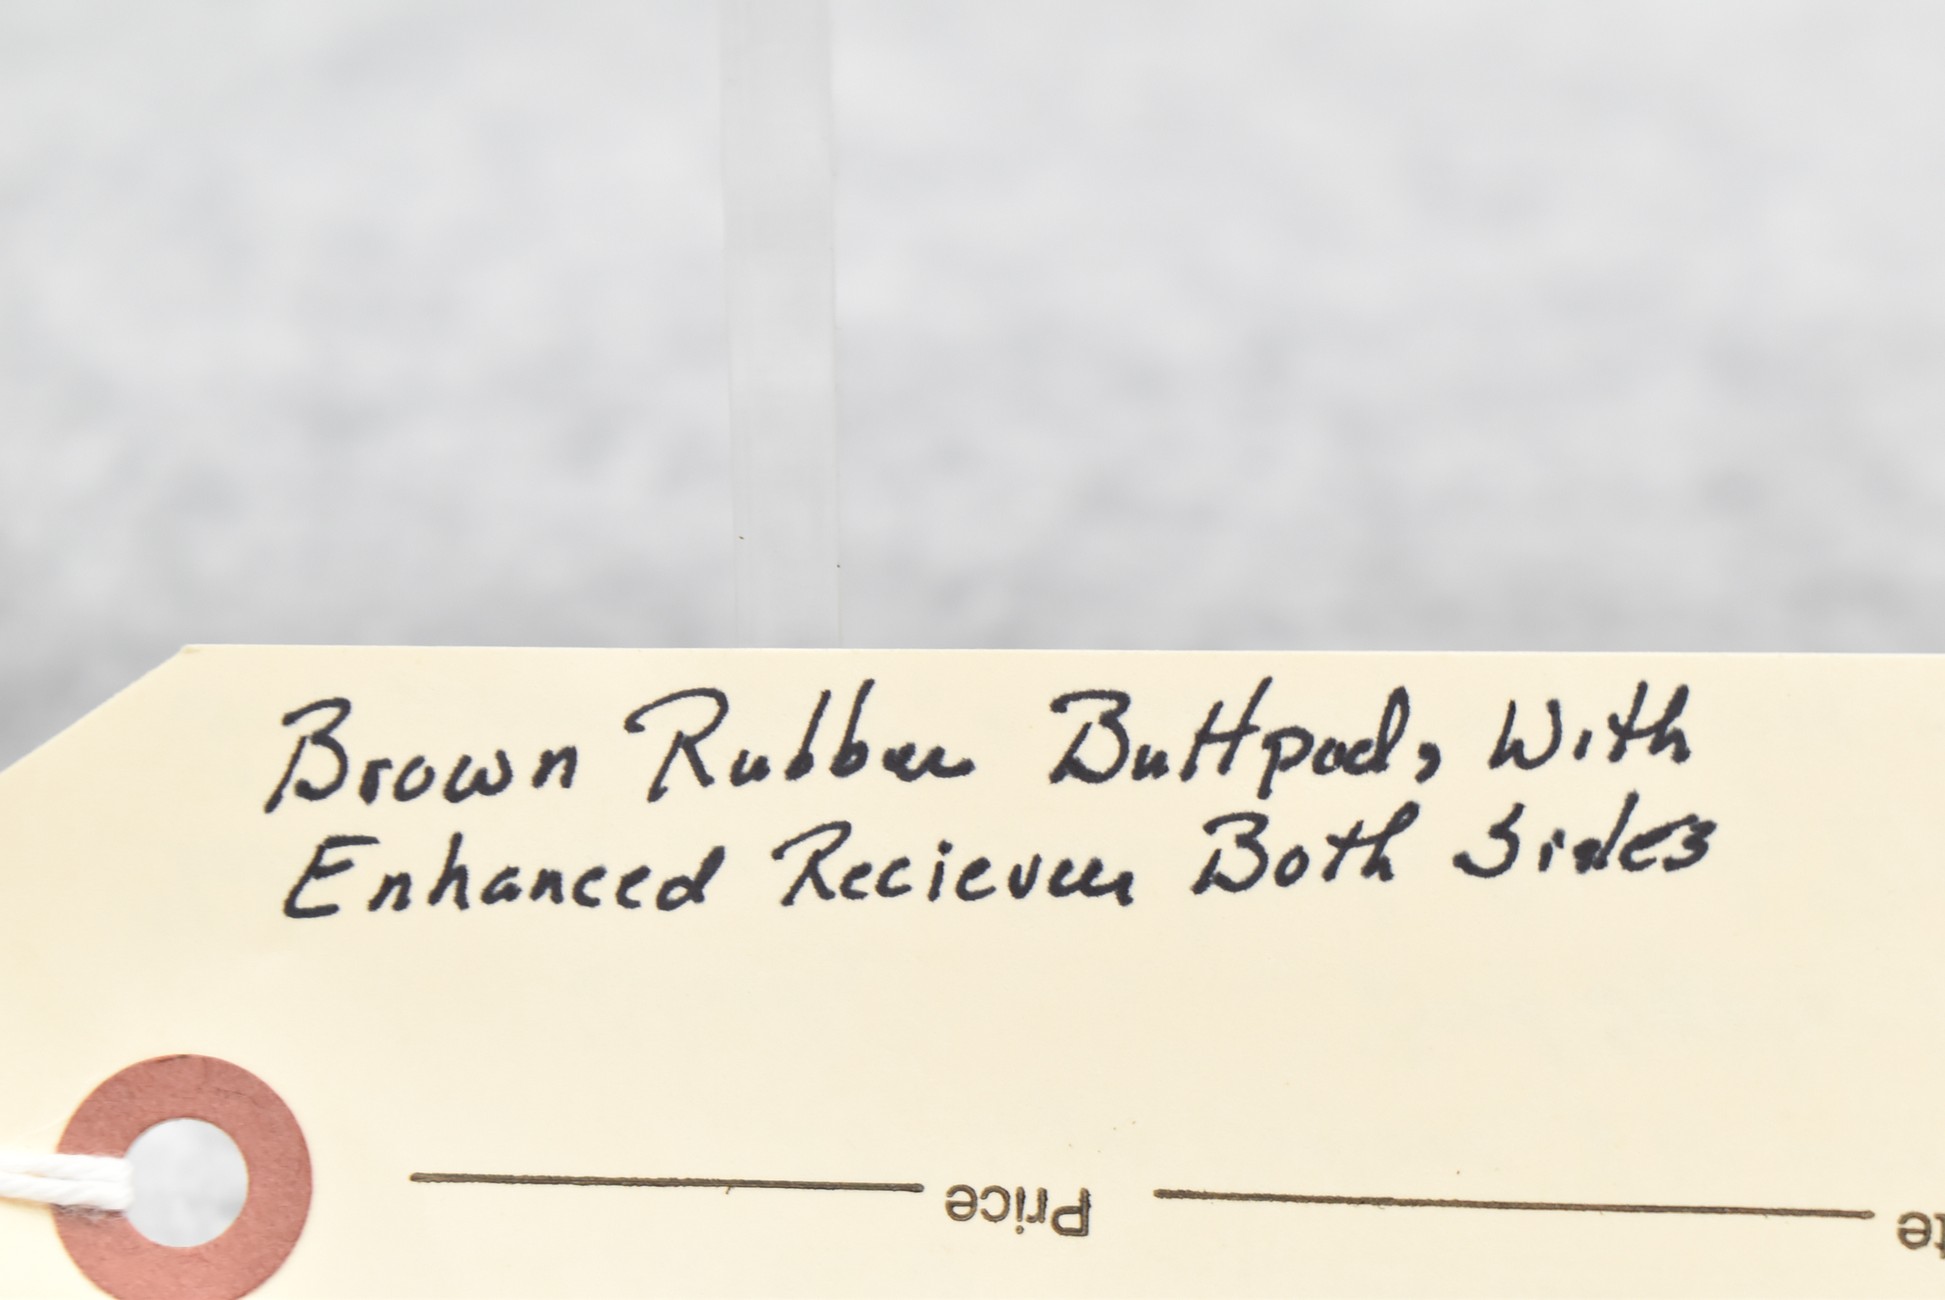 Brown Rubber Buttpad, With
Enhanced Reciever Both Sides
Price
te